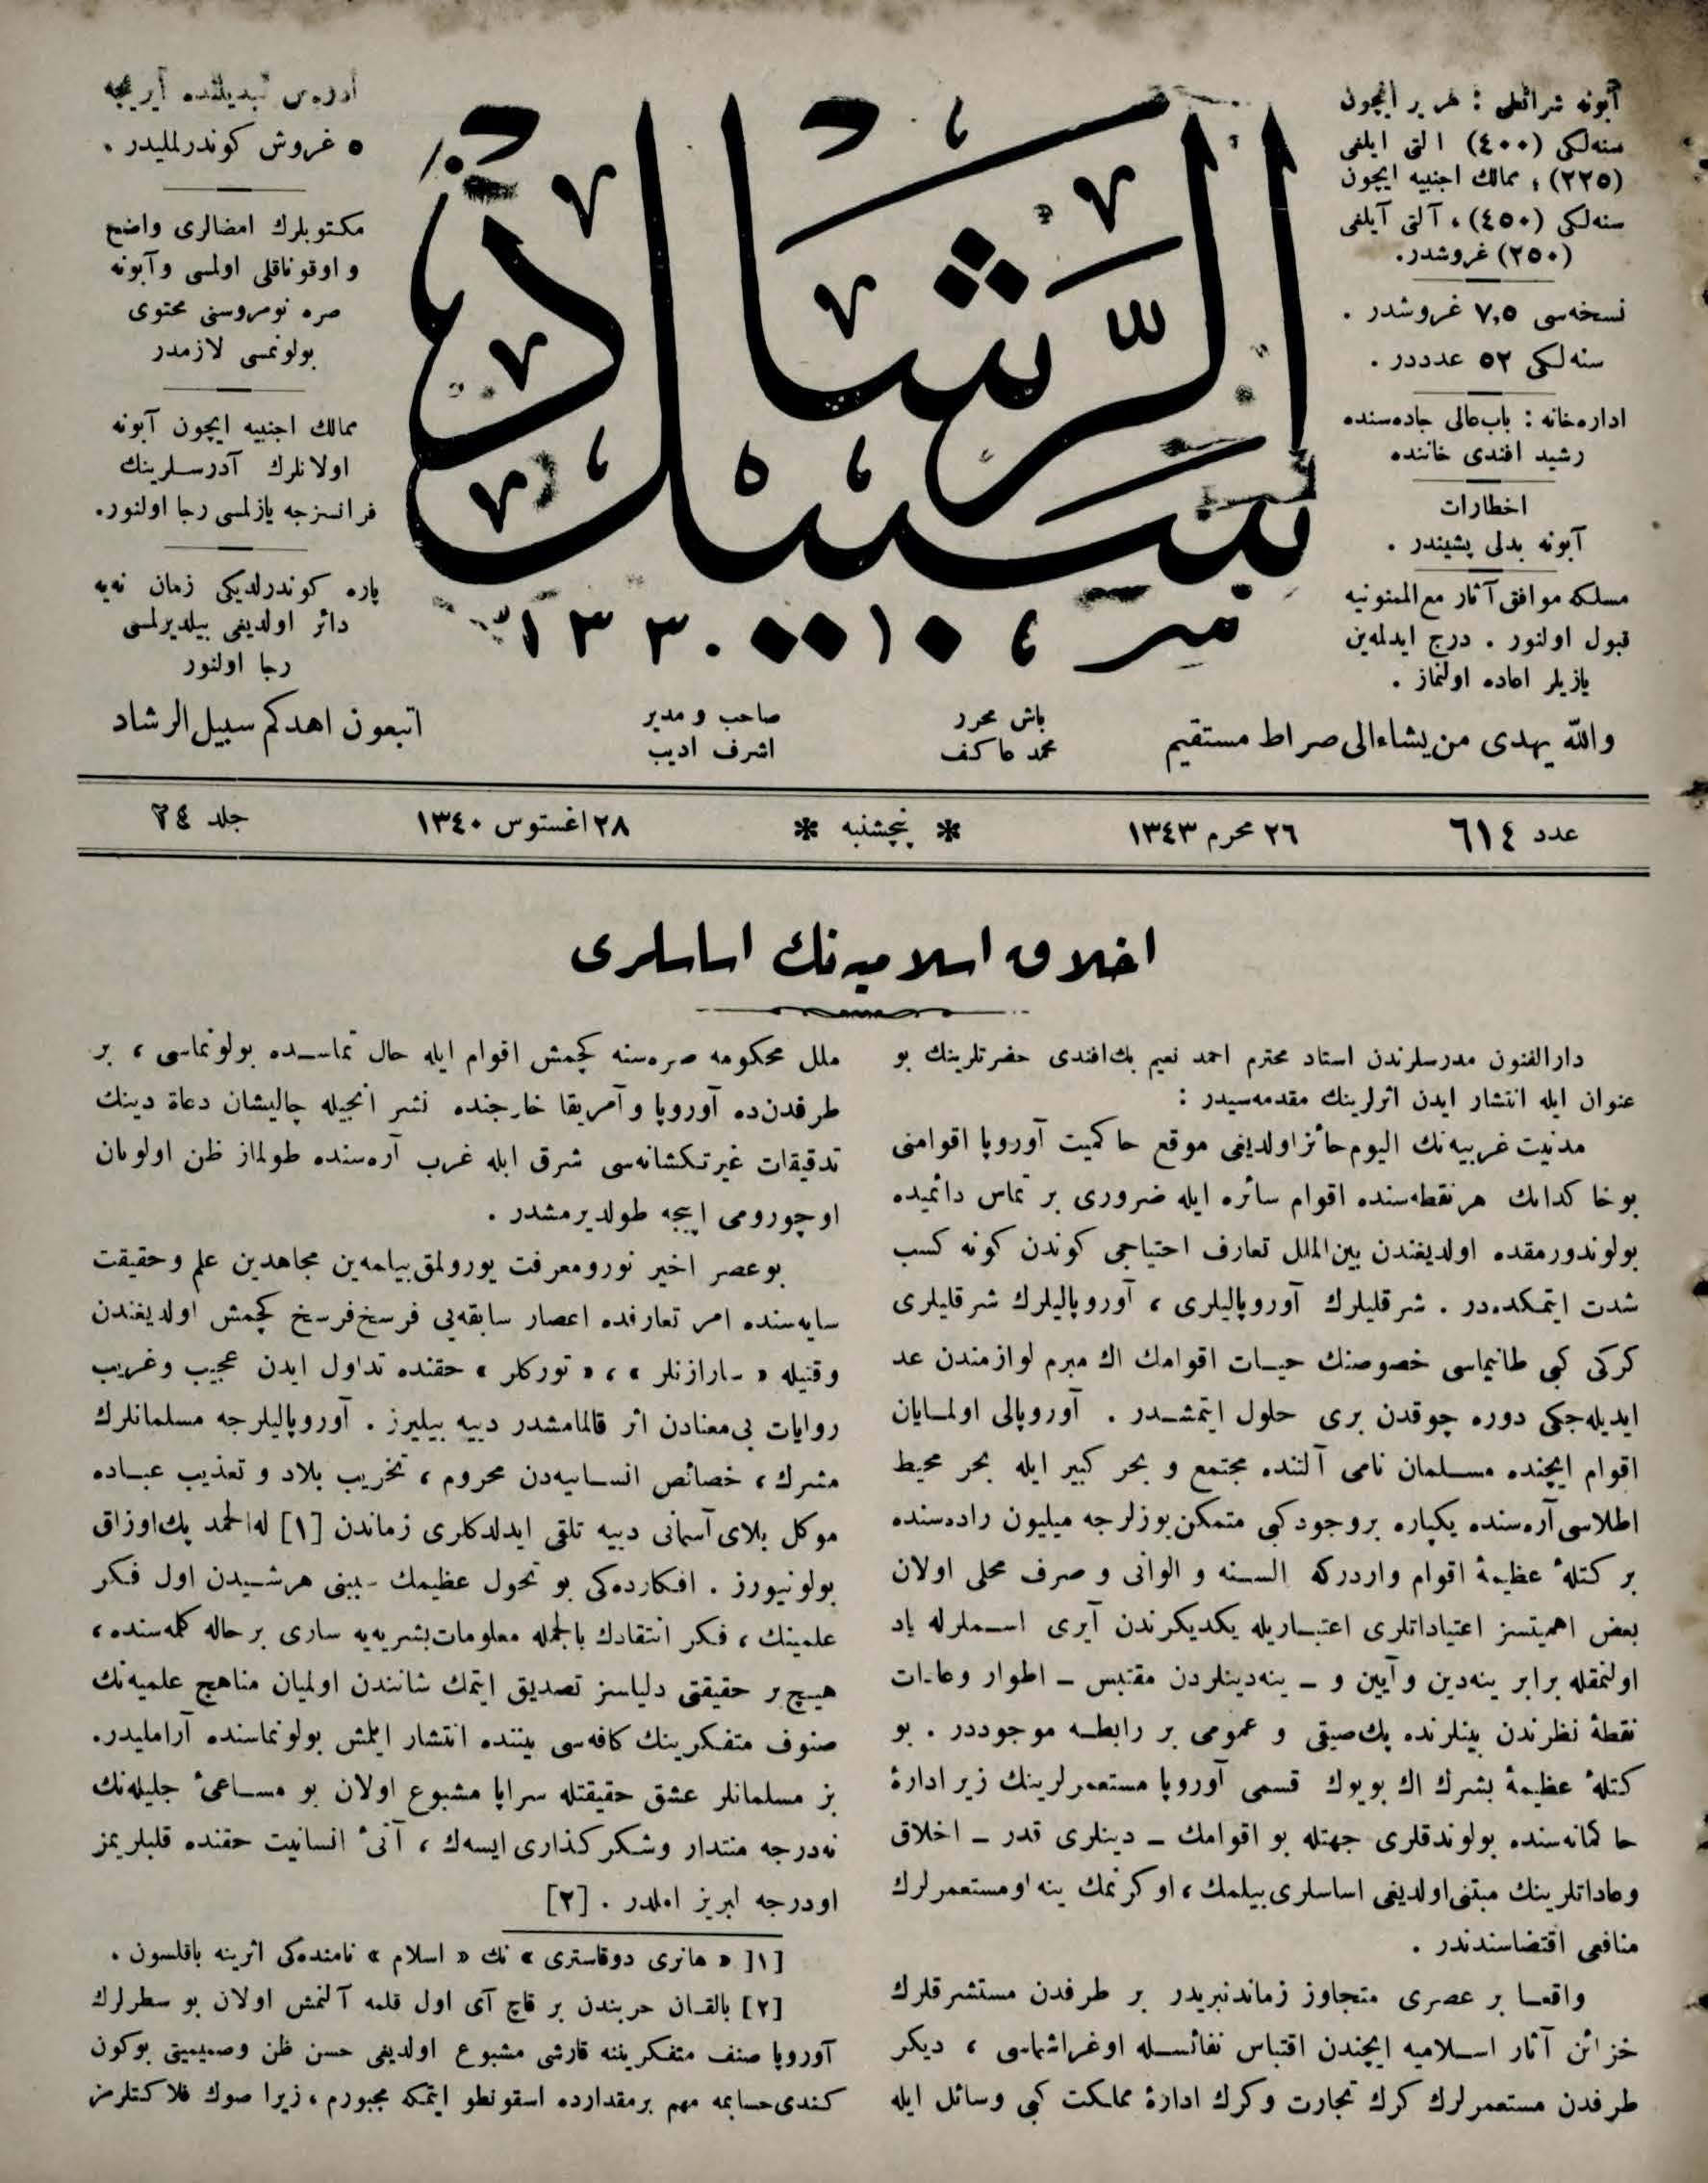 آبونه شرائطی : هر یر ایچون
سنه‌لكی (٤٠٠) التی ایلغی
(٢٢٥) ؛ ممالك اجنبیه ایچون
سنه‌لكی (٤٥٠) ، آلتی آیلغی
(٢٥٠) غروشدر.
نسخه‌سی ٧,٥ غروشدر .
سنه‌لكی ٥٢ عدددر .
اداره‌خانه : باب‌عالی جاده‌سنده
رشید افندی خاننده
اخطارات
آبونه بدلی پشیندر .
مسلكه موافق آثار مع‌الممنونیه
قبول اولنور . درج ایدلمه‌ین
یازیلر اعاده اولنماز .
سبيل الرّشاد
١٣٣٠
آدره‌س تبدیلنده آیریجه
٥ غروش كوندرلملیدر .
مكتوبلرك امضالری واضح
و اوقوناقلی اولمسی وآبونه
صره نومروسنی محتوی
بولونمسی لازمدر
ممالك اجنبیه ایچون آبونه
اولانلرك آدرسلرینك
فرانسزجه یازلمسی رجا اولنور.
پاره كوندرلدیكی زمان نه‌یه
دائر اولدیغی بیلدیرلمسی
رجا اولنور
والله یهدی من یشاء الی صراط مستقیم
باش محرر
محمد عاكف
صاحب و مدیر
اشرف ادیب
اتبعون اهدكم سبیل الرشاد
عدد ٦١٤
٢٦ محرم ١٣٤٣
* پنجشنبه *
٢٨ اغستوس ١٣٤٠
جلد ٢٤
اخلاق اسلامیه‌نك اساسلری
دارالفنون مدرسلرندن استاد محترم احمد نعیم بك‌افندی حضرتلرینك بو
عنوان ایله انتشار ایدن اثرلرینك مقدمه‌سیدر :
مدنیت غربیه‌نك الیوم حائز اولدیغی موقع حاكمیت آوروپا اقوامنی
بو خاكدانك هر نقطه‌سنده اقوام سائره ایله ضروری بر تماس دائمیده
بولوندورمقده اولدیغندن بین‌الملل تعارف احتیاجی كوندن كونه كسب
شدت ایتمكده‌در . شرقلیلرك آوروپالیلری ، آوروپالیلرك شرقلیلری
كركی كبی طانیماسی خصوصنك حیات اقوامك اك مبرم لوازمندن عد
ایدیله‌جكی دوره چوقدن بری حلول ایتمشدر . آوروپالی اولمایان
اقوام ایچنده مسلمان نامی آلتنده مجتمع و بحر كبیر ایله بحر محیط
اطلاسی آره‌سنده یكپاره بر وجود كبی متمكن یوزلرجه میلیون راده‌سنده
بر كتلهٔ عظیمهٔ اقوام واردركه السنه و الوانی و صرف محلی اولان
بعض اهمیتسز اعتیاداتلری اعتباریله یكدیكرندن آیری اسملرله یاد
اولنمقله برابر ینه‌دین و آیین و ـ ینه‌دینلردن مقتبس ـ اطوار وعادات
نقطهٔ نظرندن بینلرنده پك‌صیقی و عمومی بر رابطه موجوددر . بو
كتلهٔ عظیمهٔ بشرك اك بویوك قسمی آوروپا مستعمرلرینك زیر ادارهٔ
حاكمانه‌سنده بولوندقلری جهتله بو اقوامك ـ دینلری قدر ـ اخلاق
وعاداتلرینك مبتنی‌اولدیغی اساسلری بیلمك، اوكرنمك ینه اومستعمرلرك
منافعی اقتضاسندندر .
واقعا بر عصری متجاوز زماندنبریدر بر طرفدن مستشرقلرك
خزائن آثار اسلامیه ایچندن اقتباس نفائسله اوغراشماسی ، دیكر
طرفدن مستعمرلرك كرك تجارت وكرك ادارهٔ مملكت كبی وسائل ایله
ملل محكومه صره‌سنه كچمش اقوام ایله حال تماسده بولونماسی ، بر
طرفدن‌ده آوروپا و آمریقا خارجنده نشر انجیله چالیشان دعاة دینك
تدقیقات غیرتكشانه‌سی شرق ایله غرب آره‌سنده طولماز ظن اولونان
اوچورومی ایچه طولدیرمشدر .
بوعصر اخیر نورومعرفت یورولمق‌بیلمه‌ین مجاهدین علم و حقیقت
سایه‌سنده امر تعارفده اعصار سابقه‌یی فرسخ‌فرسخ كچمش اولدیغندن
وقتیله « سارازنلر » ، « توركلر » حقنده تداول ایدن عجیب وغریب
روایات بی‌معنادن اثر قالمامشدر دییه بیلیرز . آوروپالیلرجه مسلمانلرك
مشرك ، خصائص انسانیه‌دن محروم ، تخریب بلاد و تعذیب عباده
موكل بلای آسمانی دییه تلقی ایدلدكلری زماندن [١] له‌الحمد پك‌اوزاق
بولونیورز . افكارده‌كی بو تحول عظیمك سببنی هرشیدن اول فكر
علمینك ، فكر انتقادك بالجمله معلومات‌بشریه‌یه ساری بر حاله كلمه‌سنده،
هیچ بر حقیقتی دلیلسز تصدیق ایتمك شانندن اولمیان مناهج علمیه‌نك
صنوف متفكرینك كافه‌سی بیننده انتشار ایلمش بولونماسنده آراملیدر.
بز مسلمانلر عشق حقیقتله سراپا مشبوع اولان بو مساعیٔ جلیله‌نك
نه‌درجه منتدار وشكركذاری ایسه‌ك ، آتیٔ انسانیت حقنده قلبلریمز
اودرجه لبریز املدر . [٢]
[١] « هانری دوقاستری » نك « اسلام » نامنده‌كی اثرینه باقلسون .
[٢] بالقان حربندن بر قاچ آی اول قلمه آلنمش اولان بو سطرلرك
آوروپا صنف متفكریننه قارشی مشبوع اولدیغی حسن ظن وصمیمیتی بوكون
كندی‌حسابمه مهم برمقدارده اسقونطو ایتمكه مجبورم ، زیرا صوك فلاكتلرمز